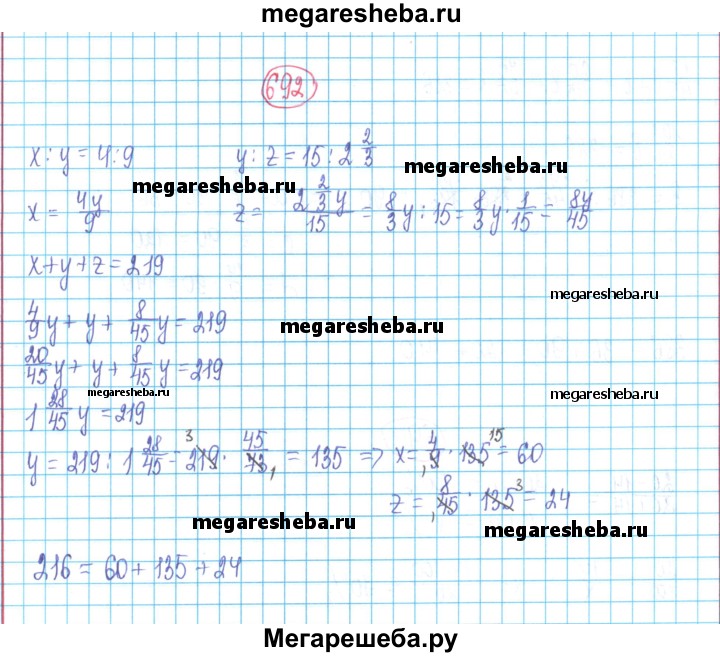 megaresheba.ru
692
x : y = 4 : 9 y : z = 15 : 2 2/3
megaresheba.ru
megaresheba.ru
x = 4y/9 z = 2 2/3 y/15 = 8/3 y : 15 = 8/3 y · 1/15 = 8y/45
x + y + z = 219
megaresheba.ru
4/9 y + y + 8/45 y = 219
megaresheba.ru
20/45 y + y + 8/45 y = 219
megaresheba.ru
megaresheba.ru
1 28/45 y = 219
y = 219 : 1 28/45 = 219 3 · 45/73 1 = 135 => x = 4/9 1 · 135 15 = 60
z = 8/45 1 · 135 3 = 24
megaresheba.ru
megaresheba.ru
216 = 60 + 135 + 24
Мегарешеба.ру